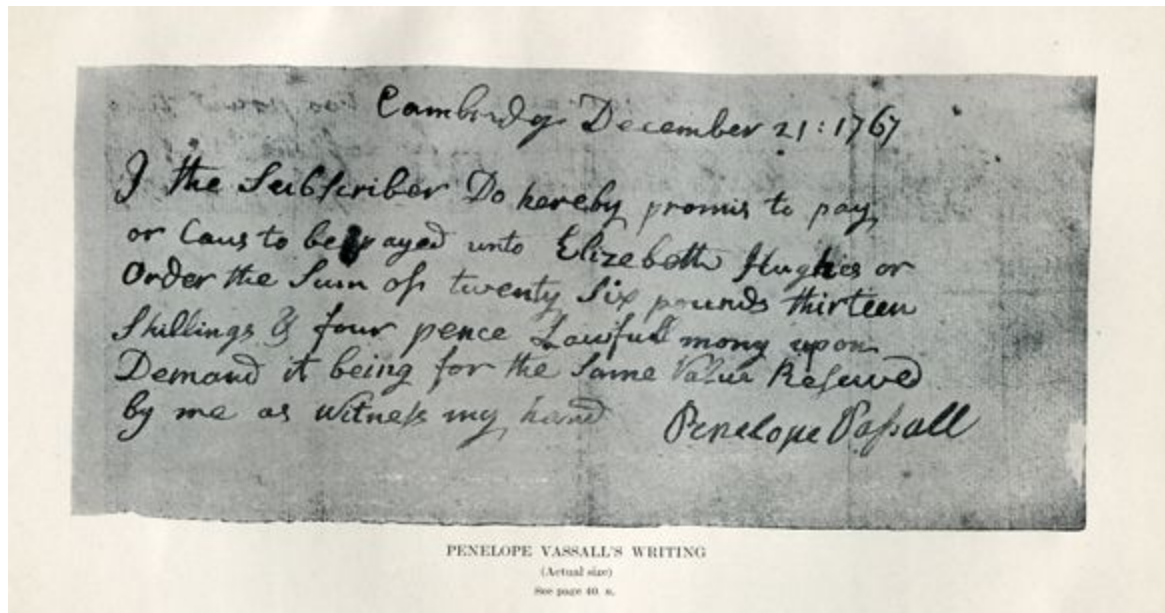 Cambridg December 21: 1767
I the Subscriber Do hereby promis to pay
or Caus to be payed unto Elizebeth Hughes or
Order the Sum of twenty Six pounds thirteen
Shillings & four pence Lawfull mony upon
Demand it being for the Same Value Reserved
by me as Witness my hand Penelope Vassall
PENELOPE VASSALL'S WRITING
(Actual size)
See page 40 n.